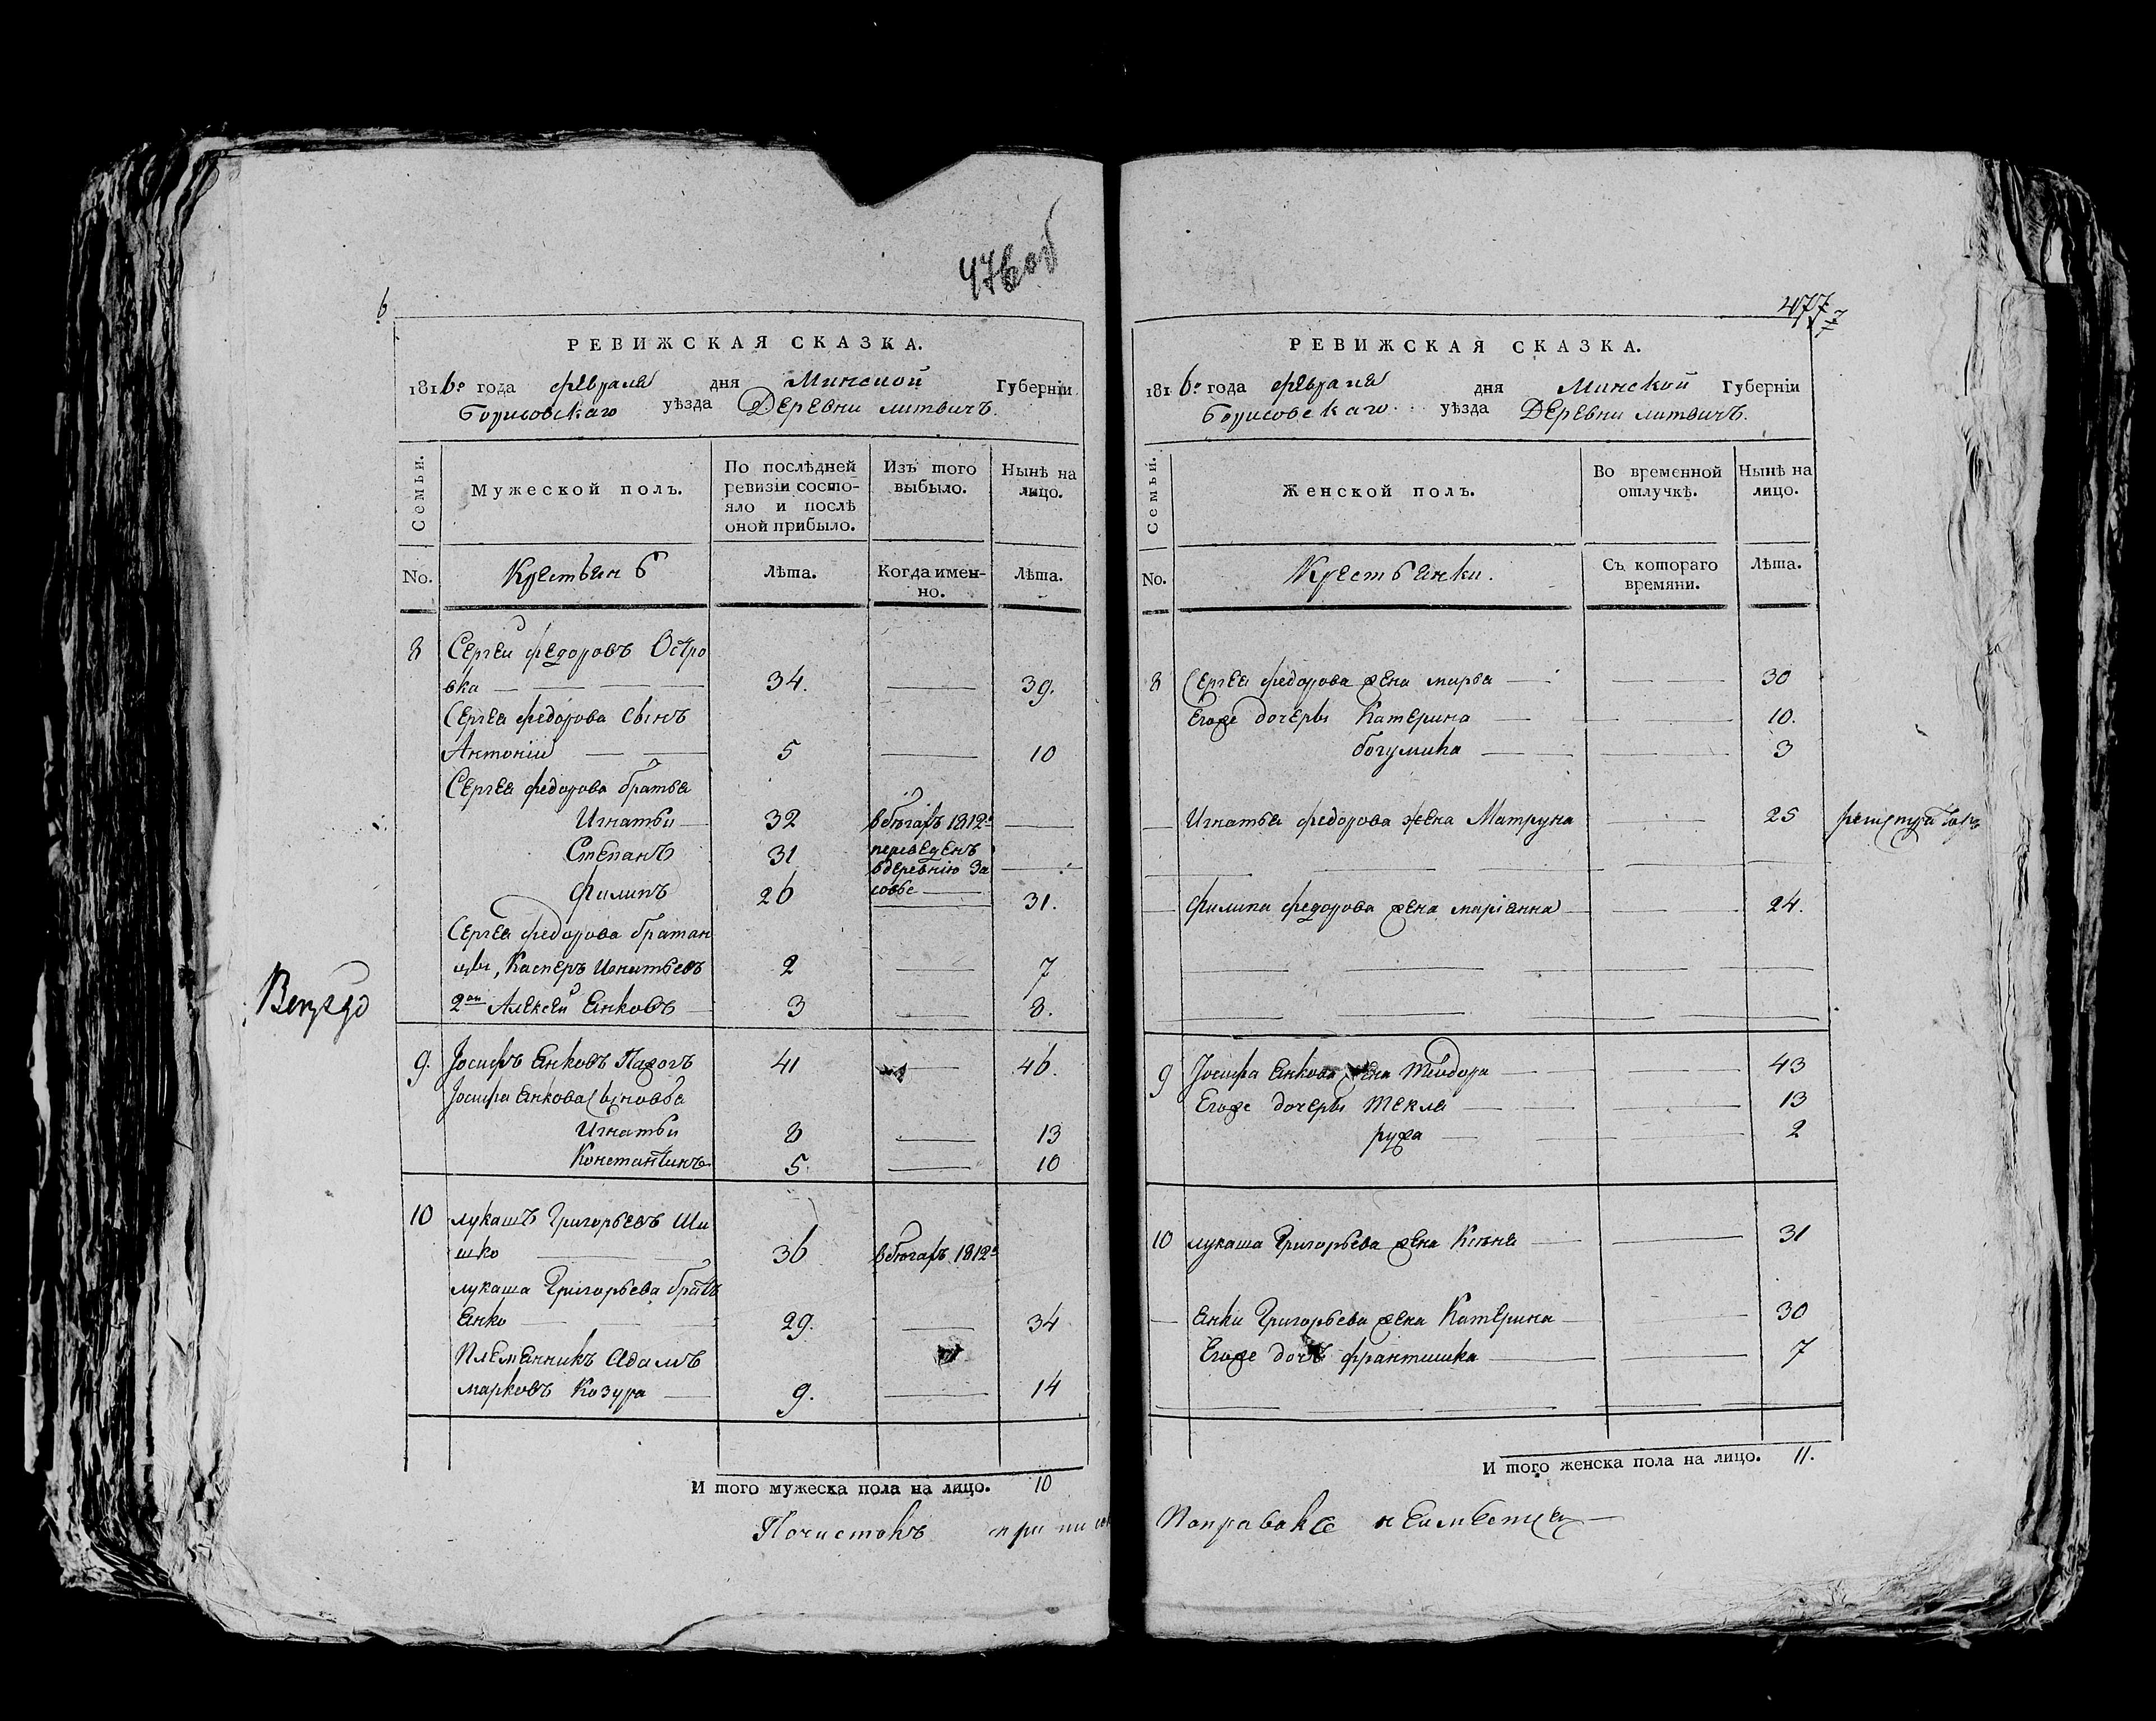 476 об
6
РЕВИЖСКАЯ СКАЗКА.
1816го года февраля дня Минской Губерніи
Борисовскаго уѣзда Деревни литвичъ.
Семьи.
Мужеской полъ.
По послѣдней ревизіи состо-
яло и послѣ оной прибыло.
Изъ того выбыло.
Нынѣ на лицо.
No. Крестьянъ Лѣта. Когда имен-
но. Лѣта.
8 Сергей федоровъ Остро
вка 34. 39.
Сергея федорова сынъ
Антоній 5 10
Сергея федорова братья
Игнатьи 32 в бѣгахъ 1812го
Степанъ 31 переведенъ
в деревнію За
Филипъ 26 31.
Сергея федорова братан
цы, Касперъ Игнатьевъ 2 7
2ой Алексей Янковъ 3 8.
9. Іосифъ Янковъ 41 46.
Іосифа Янкова сыновья
Игнатьи 8 13
Константинъ 5. 10
10 лукашъ Григорьевъ Ши
шко 36 в бѣгахъ 1812го
лукаша Григорьева братъ
Янко 29. 34
Племянникъ Адамъ
марковъ Козура 9. 14
И того мужеска пола на лицо. 10
Почистокъ припис
477
7
РЕВИЖСКАЯ СКАЗКА.
1816го года февраля дня Минской Губерніи
Борисовскаго уѣзда Деревни литвичъ.
Семьи.
Женской полъ.
Во временной отлучкѣ.
Нынѣ на лицо.
No. Крестьянки. Съ котораго времяни. Лѣта.
8 Сергея федорова жена марья 30
Егоже дочеры Катерина 10.
богумила 3
Игнатья федорова жена Матруна 25
Филипа федорова жена маріянна 24.
9 Іосифа Янкова жена теодора 43
Егоже дочеры текля 13
ружа 2
10 лукаша Григорьева жена Ксѣня 31
Янки Григорьева жена Катерина 30
Егоже дочь франтишка 7
И того женска пола на лицо. 11.
Поправокъ неимѣется